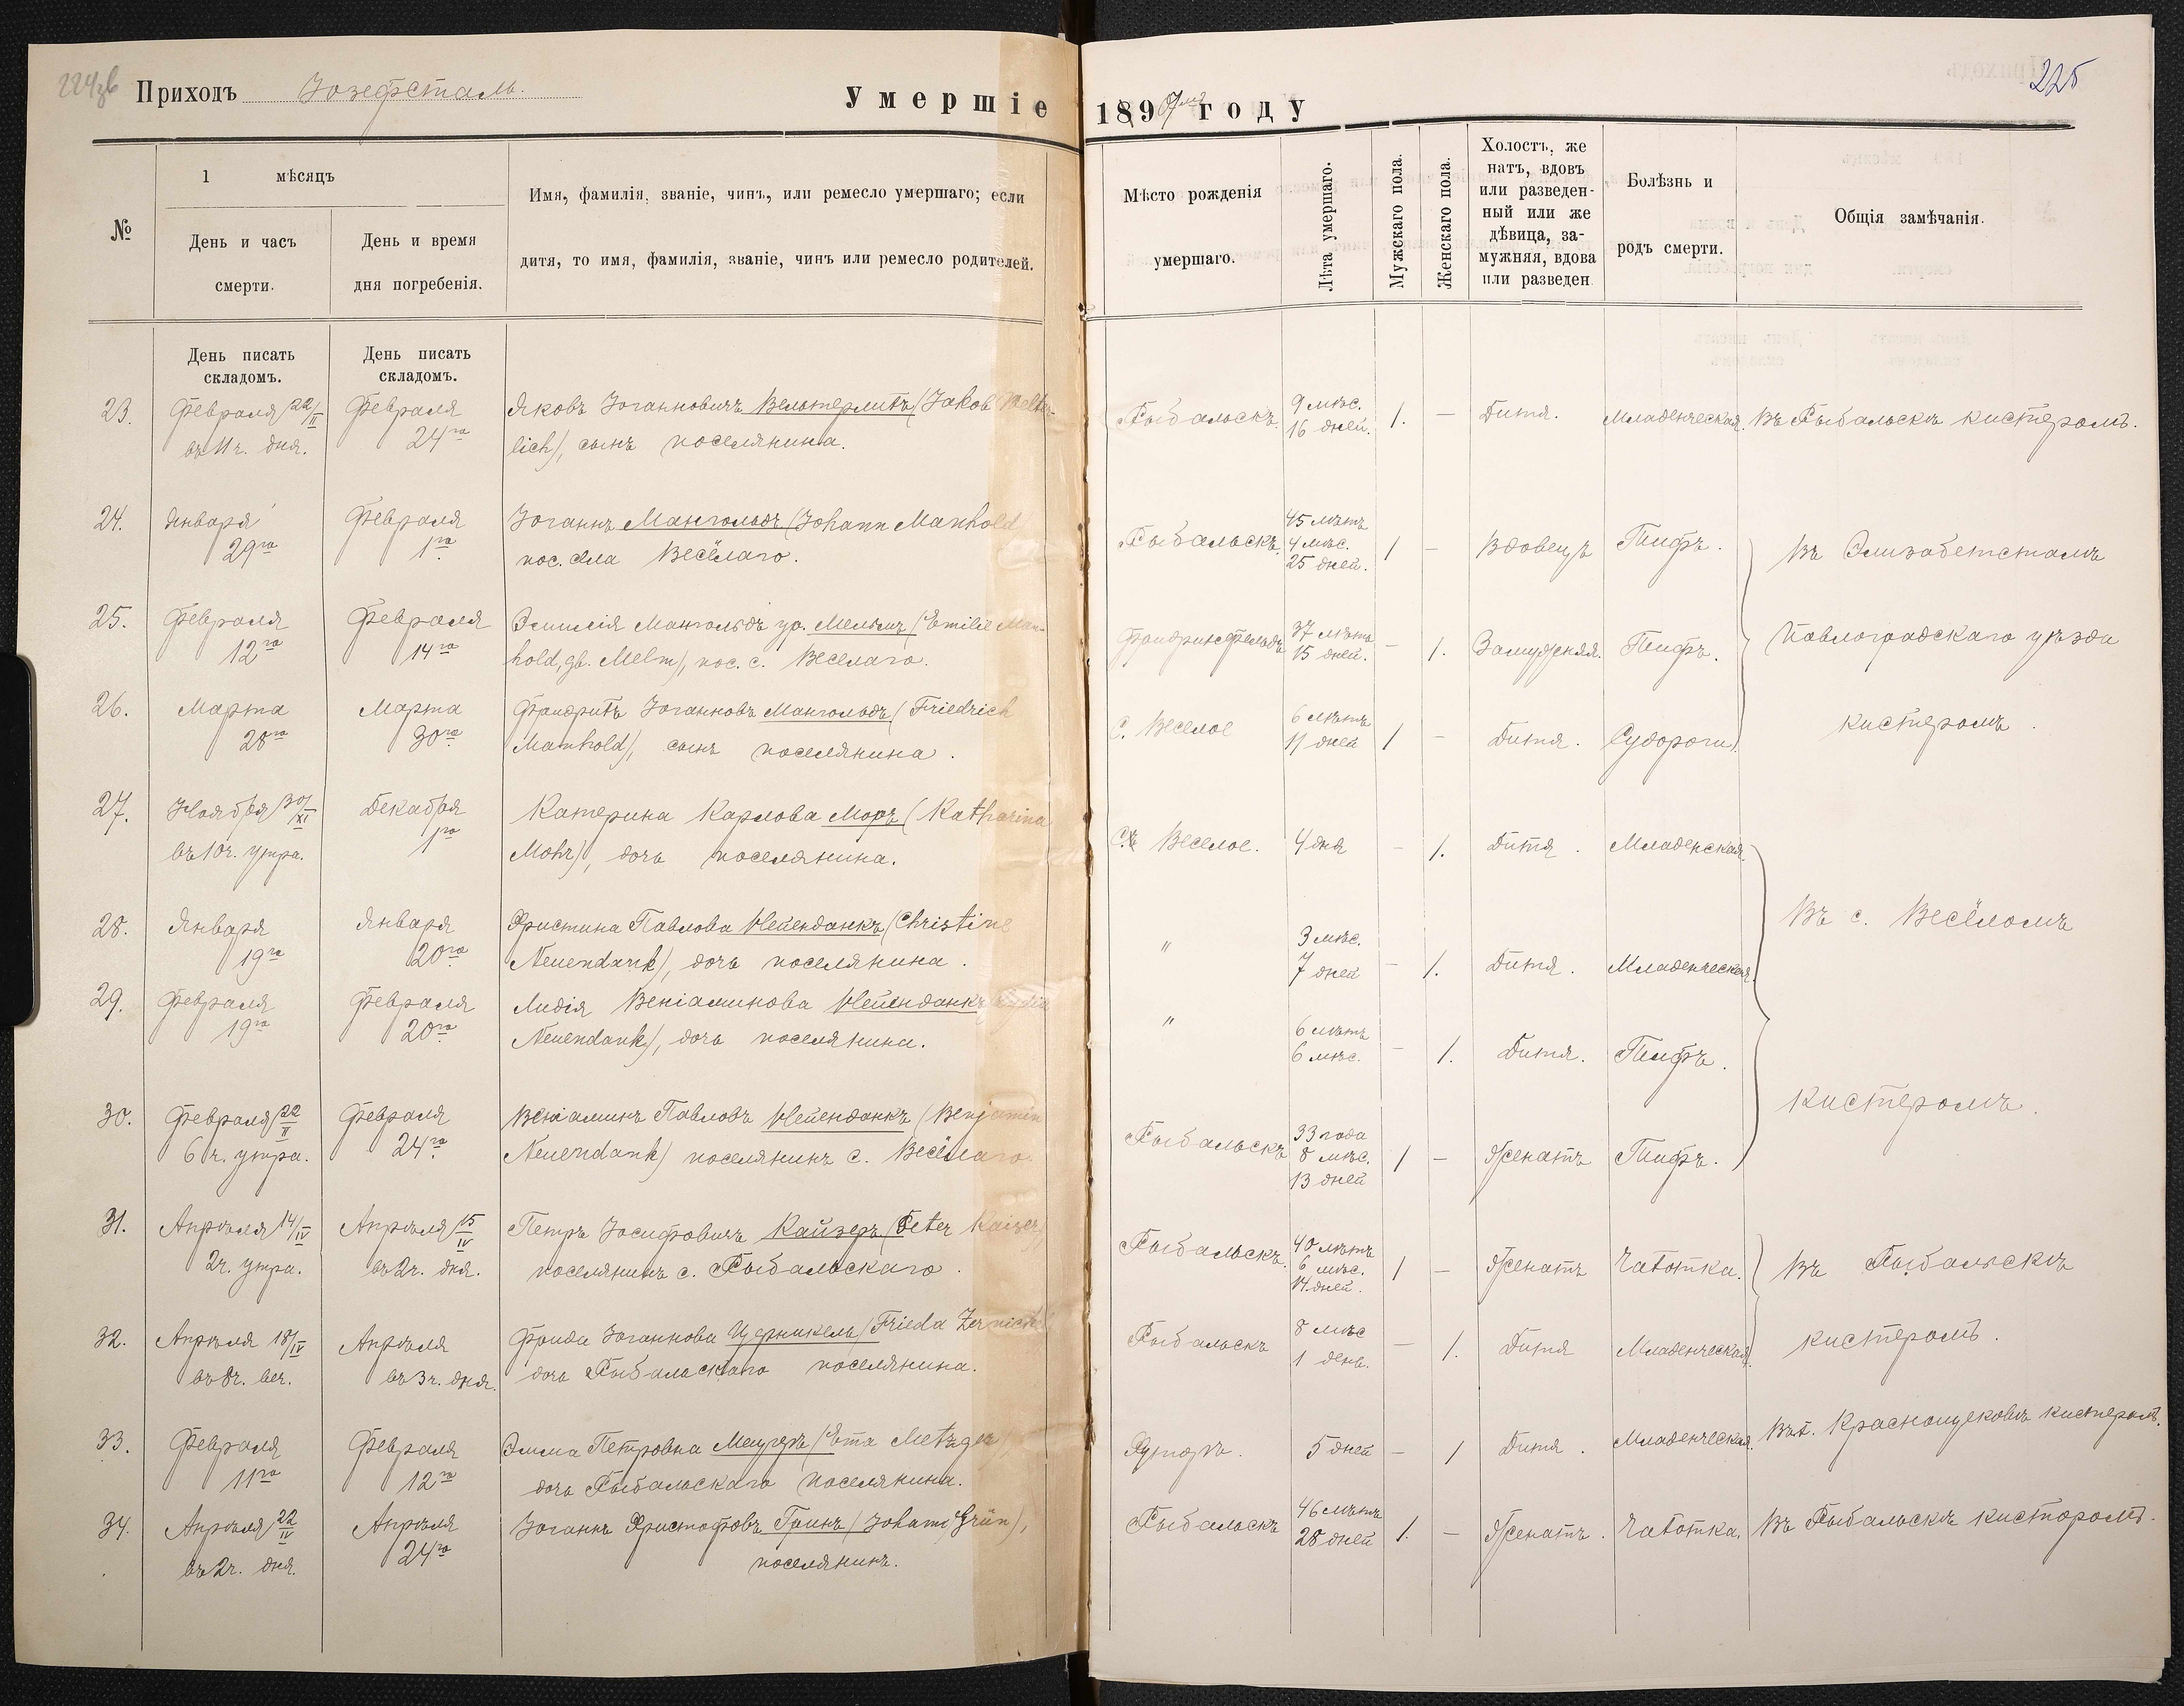 224об
Приходъ Іозефсталь.
Умершіе 1897 году
225
№
1 мѣсяцъ
День и часъ
смерти.
День и время
дня погребенія.
Имя, фамилія, званіе, чинъ, или ремесло умершаго; если
дитя, то имя, фамилія, званіе, чинъ или ремесло родителей.
Мѣсто рожденія
умершаго.
Лѣта умершаго.
Мужскаго пола.
Женскаго пола.
Холостъ, же
натъ, вдовъ
или разведен-
ный или же
дѣвица, за-
мужняя, вдова
или разведен
Болѣзнь и
родъ смерти.
Общія замѣчанія.
День писать
складомъ.
День писать
складомъ.
23.
Февраля 22/II
въ 11 ч. дня.
Февраля
24го
Яковъ Іоганновичъ Вельтерлихъ (Jakob Welter-
lich), сынъ поселянина.
Рыбальскъ.
9 мѣс.
16 дней.
1.
—
Дитя.
Младенческая.
Въ Рыбальскѣ кистеромъ.
24.
Января
29го
Февраля
1го
Іоганнъ Мангольдъ (Johann Manhold
пос. села Весёлаго.
Рыбальскъ.
45 лѣтъ
4 мѣс.
25 дней.
1
—
Вдовецъ
Тифъ.
Въ Элизабетсталѣ
25.
Февраля
12го
Февраля
14го
Эмилія Мангольдъ ур. Мельмъ (Emilie Man-
hold, gb. Melm), пос. с. Веселаго.
Фридрихсфельдъ
37 лѣтъ
15 дней.
—
1.
Замужняя.
Тифъ.
Павлоградскаго уѣзда
26.
Марта
28го
Марта
30го
Фридрихъ Іоганновъ Мангольдъ (Friedrich
Manhold), сынъ поселянина.
с. Веселое
6 лѣтъ
11 дней
1
—
Дитя.
Судороги.
кистеромъ.
27.
Ноября 30/XI
въ 10 ч. утра.
Декабря
1го
Катерина Карлова Моръ (Katharina
Mohr), дочь поселянина.
с. Веселое.
4 дня
—
1.
Дитя.
Младенская.
28.
Января
19го
Января
20го
Христина Павлова Нейенданкъ (Christine
Neuendank), дочь поселянина.
"
3 мѣс.
7 дней
—
1.
Дитя.
Младенческая.
Въ с. Весёломъ
29.
Февраля
19го
Февраля
20го
Лидія Веніаминова Нейенданкъ (Lidia
Neuendank), дочь поселянина.
"
6 лѣтъ
6 мѣс.
—
1.
Дитя.
Тифъ.
кистеромъ.
30.
Февраля 22/II
6 ч. утра.
Февраля
24го
Веніаминъ Павловъ Нейенданкъ (Benjamin
Neuendank) поселянинъ с. Весёлаго
Рыбальскъ
33 года
8 мѣс.
13 дней
1
—
Женатъ
Тифъ.
31.
Апрѣля 14/IV
2 ч. утра.
Апрѣля 15/IV
въ 2 ч. дня.
Петръ Іосифовичъ Кайзеръ (Peter Kaiser)
поселянинъ с. Рыбальскаго.
Рыбальскъ.
40 лѣтъ
6 мѣс.
14 дней.
1
—
Женатъ
Чахотка.
Въ Рыбальскѣ
32.
Апрѣля 18/IV
въ 8 ч. веч.
Апрѣля
въ 3 ч. дня.
Фрида Іоганнова Церникель (Frieda Zernickel
дочь Рыбальскаго поселянина.
Рыбальскъ
8 мѣс
1 день.
—
1.
Дитя
Младенческая.
кистеромъ.
33.
Февраля
11го
Февраля
12го
Эмма Петровна Мецгеръ (Ema Metzger),
дочь Рыбальскаго поселянина.
Хуторъ.
5 дней
—
1
Дитя.
Младенческая.
Въ х. Краснощековѣ кистеромъ.
34.
Апрѣля 22/IV
въ 2 ч. дня.
Апрѣля
24го
Іоганнъ Христофовъ Гринъ (Johann Grün),
поселянинъ.
Рыбальскъ
46 лѣтъ
28 дней
1.
—
Женатъ.
Чахотка.
Въ Рыбальскѣ кисторомъ.